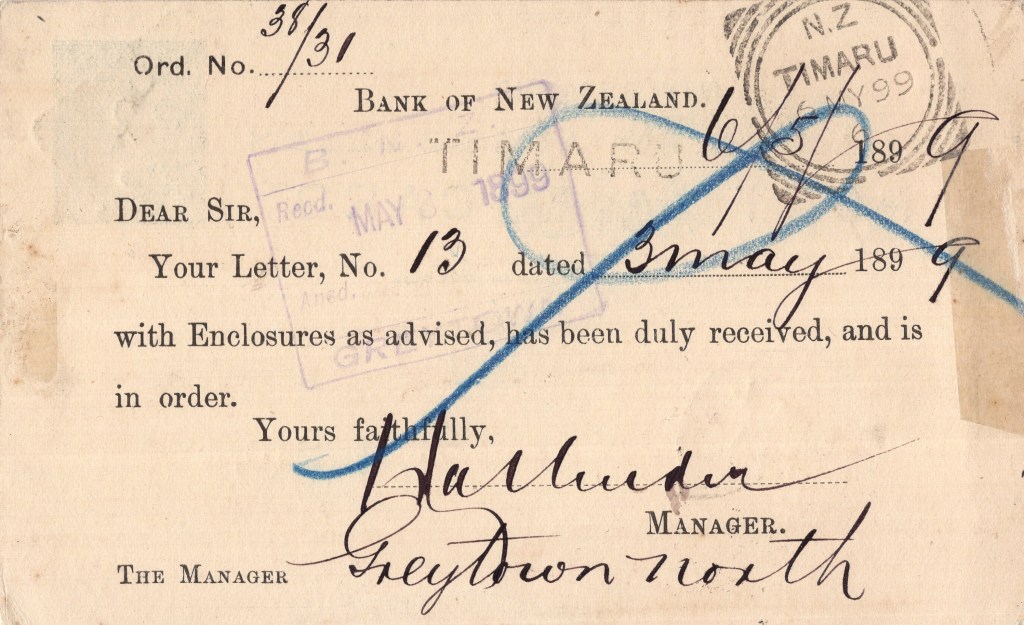 Ord. No. 38/31
N.Z
TIMARU
6 MY 99
6
BANK OF NEW ZEALAND.
TIMARU 6/5/ 1899
B. N. Z.
Recd. MAY 1899
DEAR SIR,
Your Letter, No. 13 dated 3 may 1899
with Enclosures as advised, has been duly received, and is
in order.
Yours faithfully,
MANAGER.
THE MANAGER Greytown north